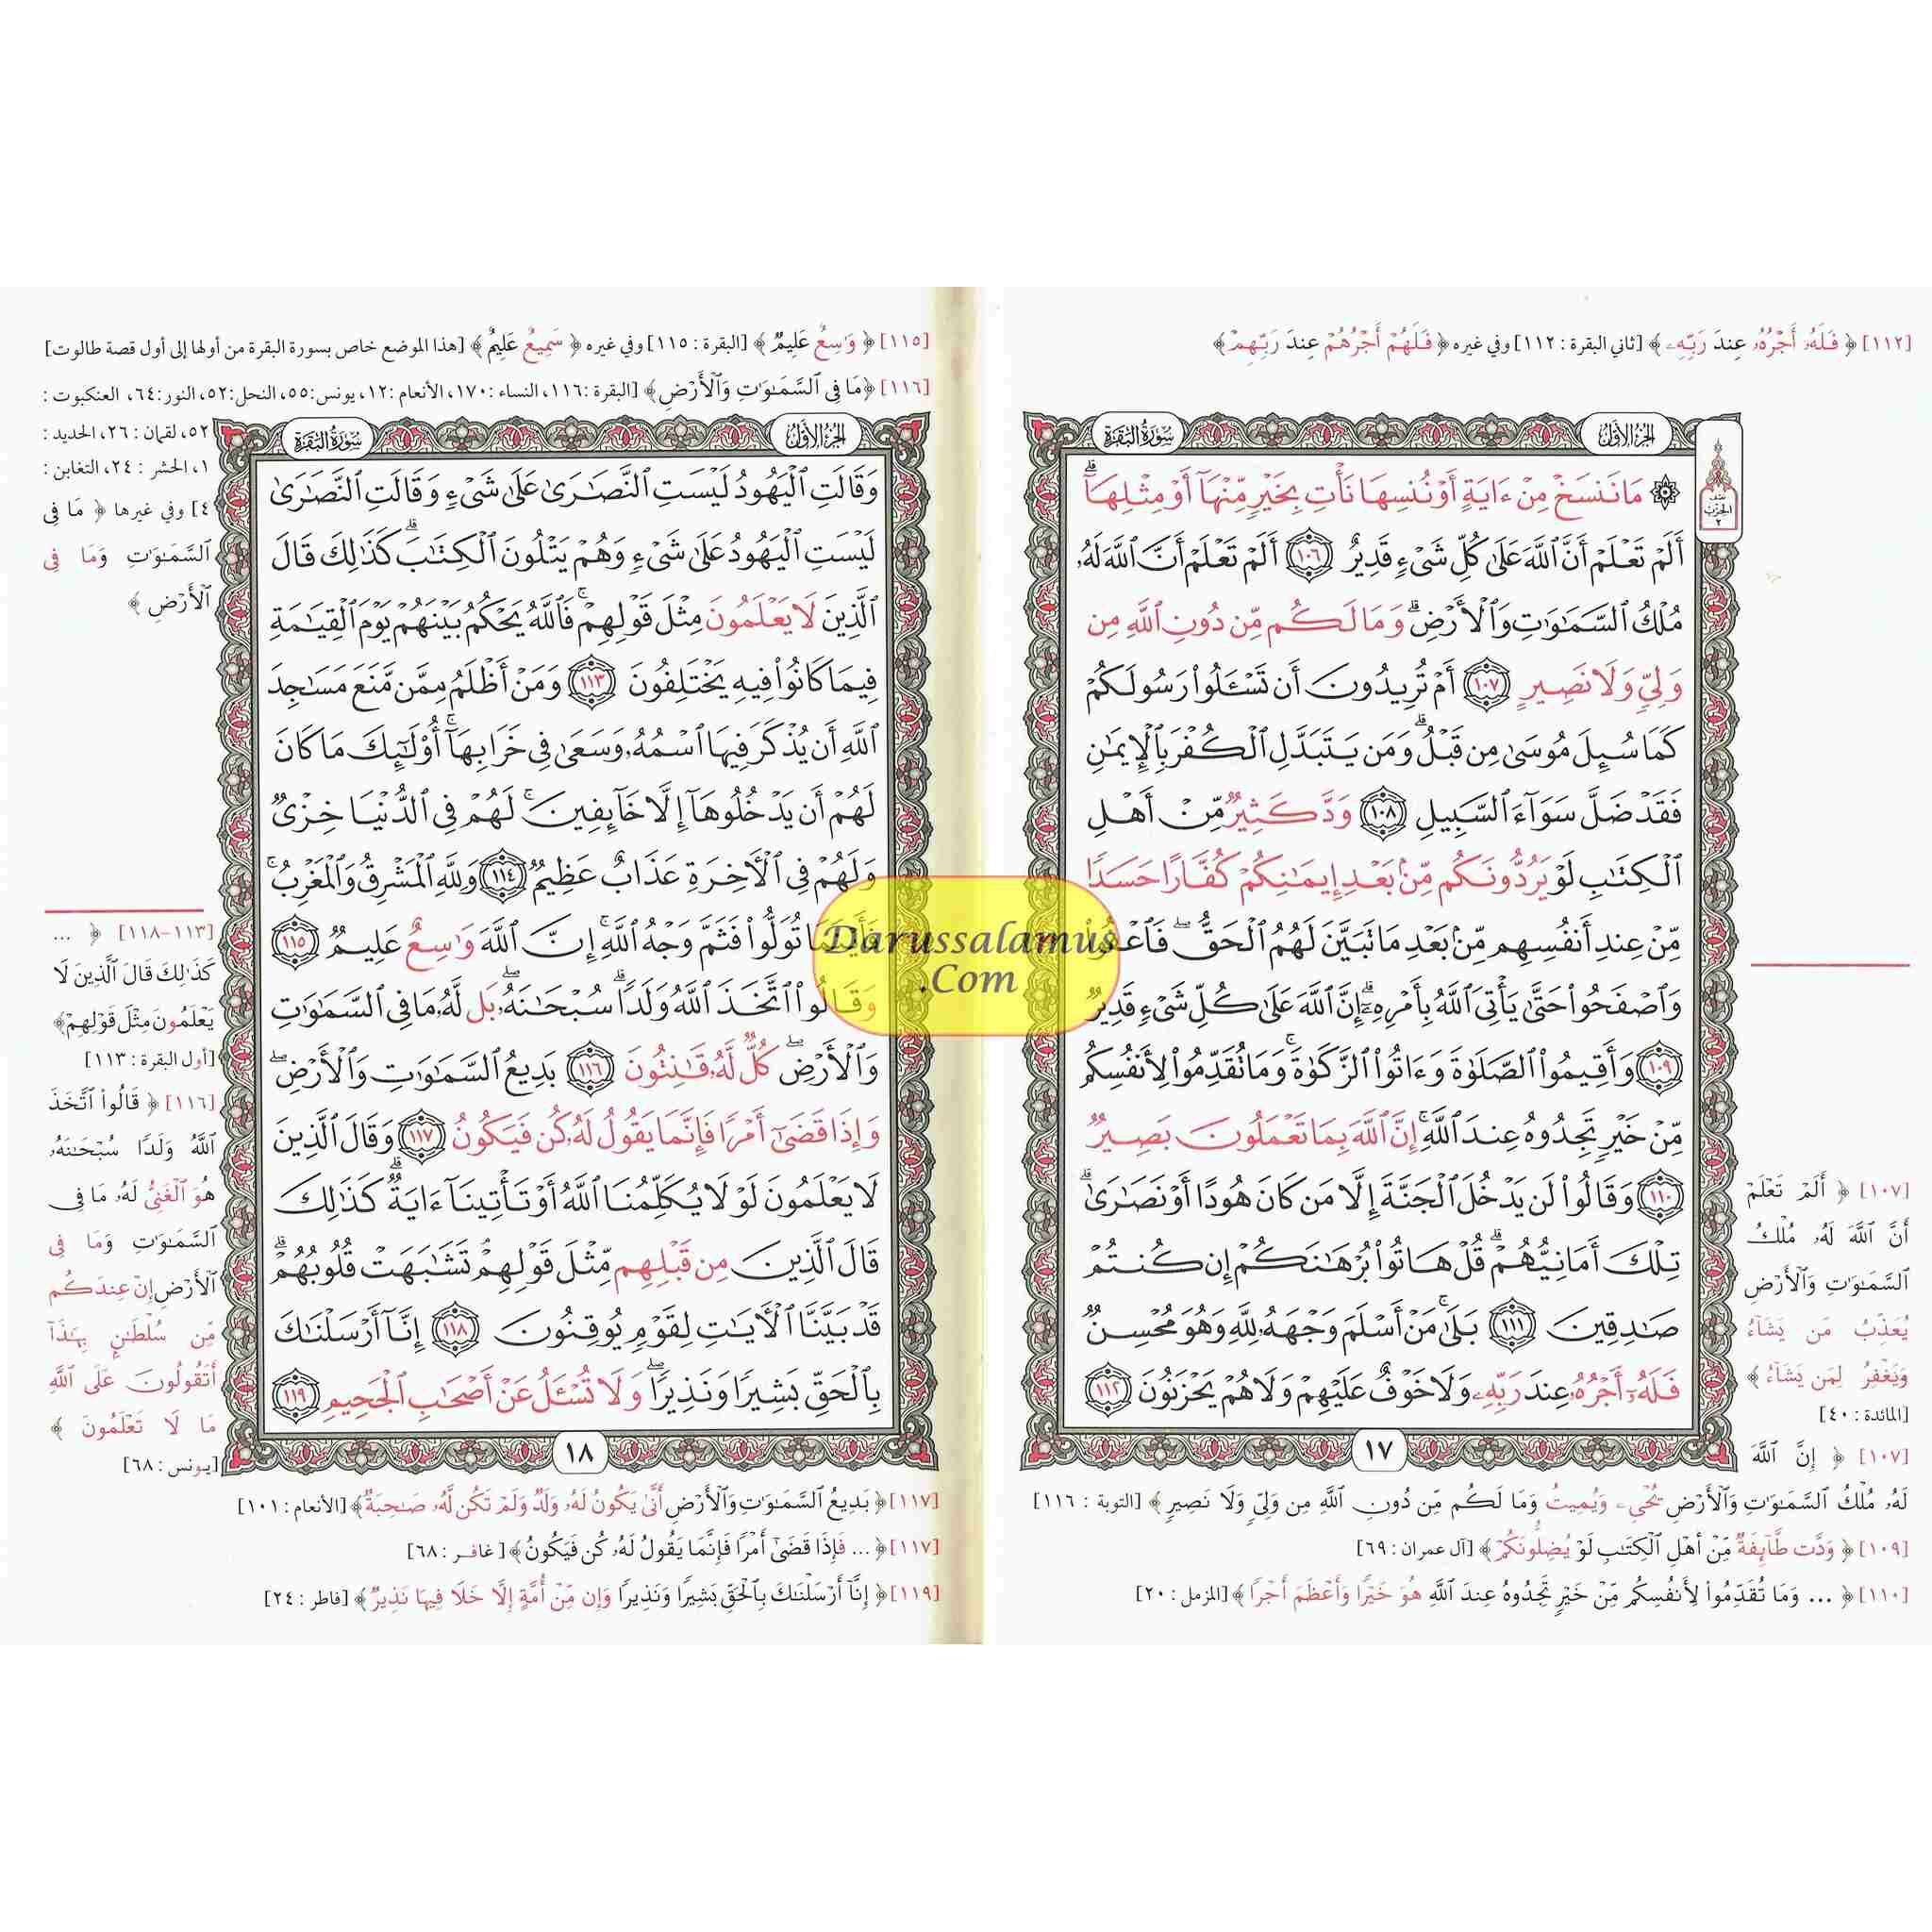 [١١٢] ﴿ فَلَهُۥٓ أَجْرُهُۥ عِندَ رَبِّهِۦ ﴾ [ثاني البقرة : ١١٢] وفي غيره ﴿ فَلَهُمْ أَجْرُهُمْ عِندَ رَبِّهِمْ ﴾
الجزء الأول
سورة البقرة
نصف
الحزب
٢
۞ مَا نَنسَخْ مِنْ ءَايَةٍ أَوْ نُنسِهَا نَأْتِ بِخَيْرٍ مِّنْهَآ أَوْ مِثْلِهَآ ۗ
أَلَمْ تَعْلَمْ أَنَّ ٱللَّهَ عَلَىٰ كُلِّ شَىْءٍ قَدِيرٌ ١٠٦ أَلَمْ تَعْلَمْ أَنَّ ٱللَّهَ لَهُۥ
مُلْكُ ٱلسَّمَٰوَٰتِ وَٱلْأَرْضِ ۗ وَمَا لَكُم مِّن دُونِ ٱللَّهِ مِن
وَلِىٍّ وَلَا نَصِيرٍ ١٠٧ أَمْ تُرِيدُونَ أَن تَسْـَٔلُوا۟ رَسُولَكُمْ
كَمَا سُئِلَ مُوسَىٰ مِن قَبْلُ ۗ وَمَن يَتَبَدَّلِ ٱلْكُفْرَ بِٱلْإِيمَٰنِ
فَقَدْ ضَلَّ سَوَآءَ ٱلسَّبِيلِ ١٠٨ وَدَّ كَثِيرٌ مِّنْ أَهْلِ
ٱلْكِتَٰبِ لَوْ يَرُدُّونَكُم مِّنۢ بَعْدِ إِيمَٰنِكُمْ كُفَّارًا حَسَدًا
مِّنْ عِندِ أَنفُسِهِم مِّنۢ بَعْدِ مَا تَبَيَّنَ لَهُمُ ٱلْحَقُّ ۖ فَٱعْفُوا۟
وَٱصْفَحُوا۟ حَتَّىٰ يَأْتِىَ ٱللَّهُ بِأَمْرِهِۦٓ ۗ إِنَّ ٱللَّهَ عَلَىٰ كُلِّ شَىْءٍ قَدِيرٌ
١٠٩ وَأَقِيمُوا۟ ٱلصَّلَوٰةَ وَءَاتُوا۟ ٱلزَّكَوٰةَ ۚ وَمَا تُقَدِّمُوا۟ لِأَنفُسِكُم
مِّنْ خَيْرٍ تَجِدُوهُ عِندَ ٱللَّهِ ۗ إِنَّ ٱللَّهَ بِمَا تَعْمَلُونَ بَصِيرٌ
١١٠ وَقَالُوا۟ لَن يَدْخُلَ ٱلْجَنَّةَ إِلَّا مَن كَانَ هُودًا أَوْ نَصَٰرَىٰ ۗ
تِلْكَ أَمَانِيُّهُمْ ۗ قُلْ هَاتُوا۟ بُرْهَٰنَكُمْ إِن كُنتُمْ
صَٰدِقِينَ ١١١ بَلَىٰ مَنْ أَسْلَمَ وَجْهَهُۥ لِلَّهِ وَهُوَ مُحْسِنٌ
فَلَهُۥٓ أَجْرُهُۥ عِندَ رَبِّهِۦ وَلَا خَوْفٌ عَلَيْهِمْ وَلَا هُمْ يَحْزَنُونَ ١١٢
١٧
[١٠٧] ﴿ أَلَمْ تَعْلَمْ
أَنَّ ٱللَّهَ لَهُۥ مُلْكُ
ٱلسَّمَٰوَٰتِ وَٱلْأَرْضِ
يُعَذِّبُ مَن يَشَآءُ
وَيَغْفِرُ لِمَن يَشَآءُ ﴾
[المائدة : ٤٠]
[١٠٧] ﴿ إِنَّ ٱللَّهَ
لَهُۥ مُلْكُ ٱلسَّمَٰوَٰتِ وَٱلْأَرْضِ يُحْىِۦ وَيُمِيتُ وَمَا لَكُم مِّن دُونِ ٱللَّهِ مِن وَلِىٍّ وَلَا نَصِيرٍ ﴾ [التوبة : ١١٦]
[١٠٩] ﴿ وَدَّت طَّآئِفَةٌ مِّنْ أَهْلِ ٱلْكِتَٰبِ لَوْ يُضِلُّونَكُمْ ﴾ [آل عمران : ٦٩]
[١١٠] ﴿ ... وَمَا تُقَدِّمُوا۟ لِأَنفُسِكُم مِّنْ خَيْرٍ تَجِدُوهُ عِندَ ٱللَّهِ هُوَ خَيْرًا وَأَعْظَمَ أَجْرًا ﴾ [المزمل : ٢٠]
[١١٥] ﴿ وَٰسِعٌ عَلِيمٌ ﴾ [البقرة : ١١٥] وفي غيره ﴿ سَمِيعٌ عَلِيمٌ ﴾ [هذا الموضع خاص بسورة البقرة من أولها إلى أول قصة طالوت]
[١١٦] ﴿ مَا فِى ٱلسَّمَٰوَٰتِ وَٱلْأَرْضِ ﴾ [البقرة :١١٦، النساء :١٧٠، الأنعام :١٢، يونس:٥٥، النحل:٥٢، النور:٦٤، العنكبوت :
٥٢، لقمان : ٢٦، الحديد :
١، الحشر : ٢٤، التغابن :
٤] وفي غيرها ﴿ مَا فِى
ٱلسَّمَٰوَٰتِ وَمَا فِى
ٱلْأَرْضِ ﴾
الجزء الأول
سورة البقرة
وَقَالَتِ ٱلْيَهُودُ لَيْسَتِ ٱلنَّصَٰرَىٰ عَلَىٰ شَىْءٍ وَقَالَتِ ٱلنَّصَٰرَىٰ
لَيْسَتِ ٱلْيَهُودُ عَلَىٰ شَىْءٍ وَهُمْ يَتْلُونَ ٱلْكِتَٰبَ ۗ كَذَٰلِكَ قَالَ
ٱلَّذِينَ لَا يَعْلَمُونَ مِثْلَ قَوْلِهِمْ ۚ فَٱللَّهُ يَحْكُمُ بَيْنَهُمْ يَوْمَ ٱلْقِيَٰمَةِ
فِيمَا كَانُوا۟ فِيهِ يَخْتَلِفُونَ ١١٣ وَمَنْ أَظْلَمُ مِمَّن مَّنَعَ مَسَٰجِدَ
ٱللَّهِ أَن يُذْكَرَ فِيهَا ٱسْمُهُۥ وَسَعَىٰ فِى خَرَابِهَآ ۚ أُو۟لَٰٓئِكَ مَا كَانَ
لَهُمْ أَن يَدْخُلُوهَآ إِلَّا خَآئِفِينَ ۚ لَهُمْ فِى ٱلدُّنْيَا خِزْىٌ
وَلَهُمْ فِى ٱلْءَاخِرَةِ عَذَابٌ عَظِيمٌ ١١٤ وَلِلَّهِ ٱلْمَشْرِقُ وَٱلْمَغْرِبُ ۚ
فَأَيْنَمَا تُوَلُّوا۟ فَثَمَّ وَجْهُ ٱللَّهِ ۚ إِنَّ ٱللَّهَ وَٰسِعٌ عَلِيمٌ ١١٥
وَقَالُوا۟ ٱتَّخَذَ ٱللَّهُ وَلَدًا ۗ سُبْحَٰنَهُۥ ۖ بَل لَّهُۥ مَا فِى ٱلسَّمَٰوَٰتِ
وَٱلْأَرْضِ ۖ كُلٌّ لَّهُۥ قَٰنِتُونَ ١١٦ بَدِيعُ ٱلسَّمَٰوَٰتِ وَٱلْأَرْضِ ۖ
وَإِذَا قَضَىٰٓ أَمْرًا فَإِنَّمَا يَقُولُ لَهُۥ كُن فَيَكُونُ ١١٧ وَقَالَ ٱلَّذِينَ
لَا يَعْلَمُونَ لَوْلَا يُكَلِّمُنَا ٱللَّهُ أَوْ تَأْتِينَآ ءَايَةٌ ۗ كَذَٰلِكَ
قَالَ ٱلَّذِينَ مِن قَبْلِهِم مِّثْلَ قَوْلِهِمْ ۘ تَشَٰبَهَتْ قُلُوبُهُمْ ۗ
قَدْ بَيَّنَّا ٱلْءَايَٰتِ لِقَوْمٍ يُوقِنُونَ ١١٨ إِنَّآ أَرْسَلْنَٰكَ
بِٱلْحَقِّ بَشِيرًا وَنَذِيرًا ۖ وَلَا تُسْـَٔلُ عَنْ أَصْحَٰبِ ٱلْجَحِيمِ ١١٩
١٨
[١١٣-١١٨] ﴿ ...
كَذَٰلِكَ قَالَ ٱلَّذِينَ لَا
يَعْلَمُونَ مِثْلَ قَوْلِهِمْ ﴾
[أول البقرة : ١١٣]
[١١٦] ﴿ قَالُوا۟ ٱتَّخَذَ
ٱللَّهُ وَلَدًا سُبْحَٰنَهُۥ
هُوَ ٱلْغَنِىُّ لَهُۥ مَا فِى
ٱلسَّمَٰوَٰتِ وَمَا فِى
ٱلْأَرْضِ إِنْ عِندَكُم
مِّن سُلْطَٰنٍۭ بِهَٰذَآ
أَتَقُولُونَ عَلَى ٱللَّهِ
مَا لَا تَعْلَمُونَ ﴾
[يونس : ٦٨]
[١١٧] ﴿ بَدِيعُ ٱلسَّمَٰوَٰتِ وَٱلْأَرْضِ أَنَّىٰ يَكُونُ لَهُۥ وَلَدٌ وَلَمْ تَكُن لَّهُۥ صَٰحِبَةٌ ﴾ [الأنعام : ١٠١]
[١١٧] ﴿ ... فَإِذَا قَضَىٰٓ أَمْرًا فَإِنَّمَا يَقُولُ لَهُۥ كُن فَيَكُونُ ﴾ [غافر : ٦٨]
[١١٩] ﴿ إِنَّآ أَرْسَلْنَٰكَ بِٱلْحَقِّ بَشِيرًا وَنَذِيرًا وَإِن مِّنْ أُمَّةٍ إِلَّا خَلَا فِيهَا نَذِيرٌ ﴾ [فاطر : ٢٤]
Darussalamus
.Com